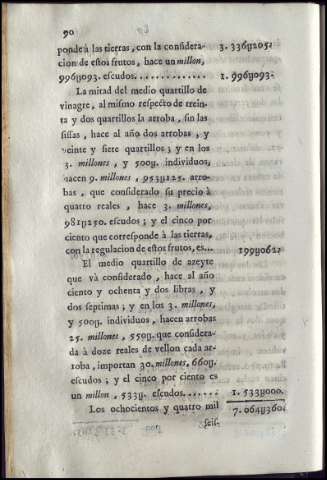 90
ponde à las tierras, con la considera- 3. 336y205.
cion de estos frutos, hace un millon,
996y093. escudos. . . . . . . . . . . . . 1. 996y093.
La mitad del medio quartillo de
vinagre, al mismo respecto de trein-
ta y dos quartillos la arroba, sin las
sissas, hace al año dos arrobas, y
veinte y siete quartillos; y en los
3. millones, y 500y. individuos,
hacen 9. millones, 953y125. arro-
bas, que considerado su precio à
quatro reales, hace 3. millones,
981y250. escudos; y el cinco por
ciento que corresponde à las tierras,
con la regulacion de estos frutos, es... 199y062.
El medio quartillo de azeyte
que và considerado, hace al año
ciento y ochenta y dos libras, y
dos septimas; y en los 3. millones,
y 500y. individuos, hacen arrobas
25. millones, 550y. que considera-
da à doze reales de vellon cada ar-
roba, importan 30. millones, 660y.
escudos; y el cinco por ciento es
un millon, 533y. escudos. . . . . . . 1. 533y000.
Los ochocientos y quatro mil 7. 064y360.
seis-